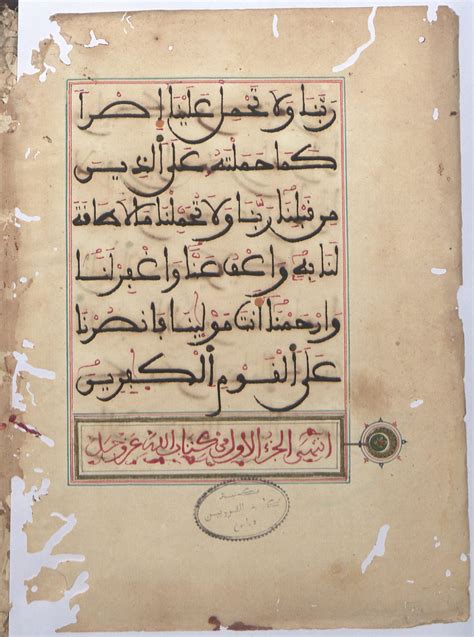 رَبَّنَا وَلَا تَحْمِلْ عَلَيْنَا إِصْراً
كَمَا حَمَلْتَهُ عَلَى الذِينَ
مِن قَبْلِنَا رَبَّنَا وَلَا تُحَمِّلْنَا مَا لَا طَاقَةَ
لَنَا بِهِ وَاعْفُ عَنَّا وَاغْفِرْ لَنَا
وَارْحَمْنَا أَنتَ مَوْلَيٰنَا فَانصُرْنَا
عَلَى الْقَوْمِ الْكَٰفِرِينَ
انتهى الجزء الاول من كتاب الله عز وجل
مكتبة
القرويين